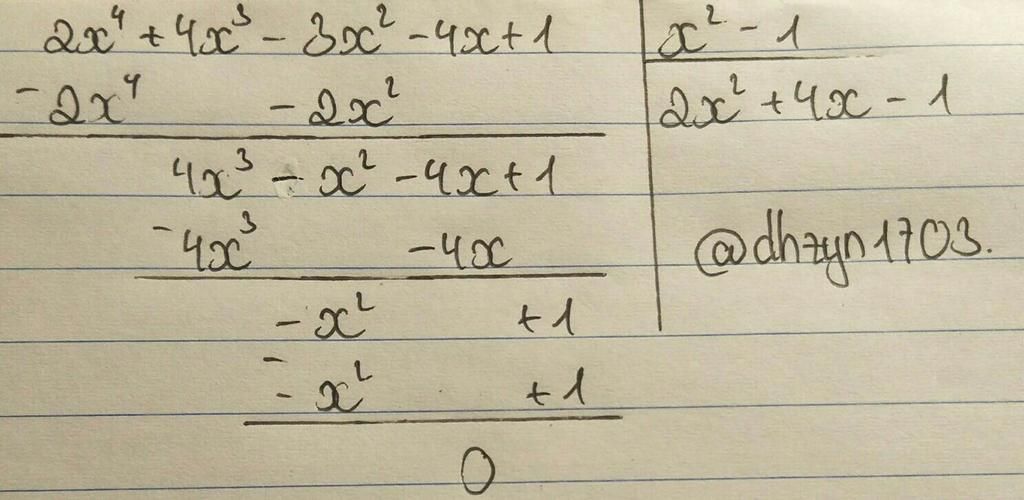 2x⁴ + 4x³ - 3x² - 4x + 1 | x² - 1
- 2x⁴ - 2x² | 2x² + 4x - 1
4x³ - x² - 4x + 1
- 4x³ - 4x
@dhzyn1703.
- x² + 1
-
- x² + 1
0